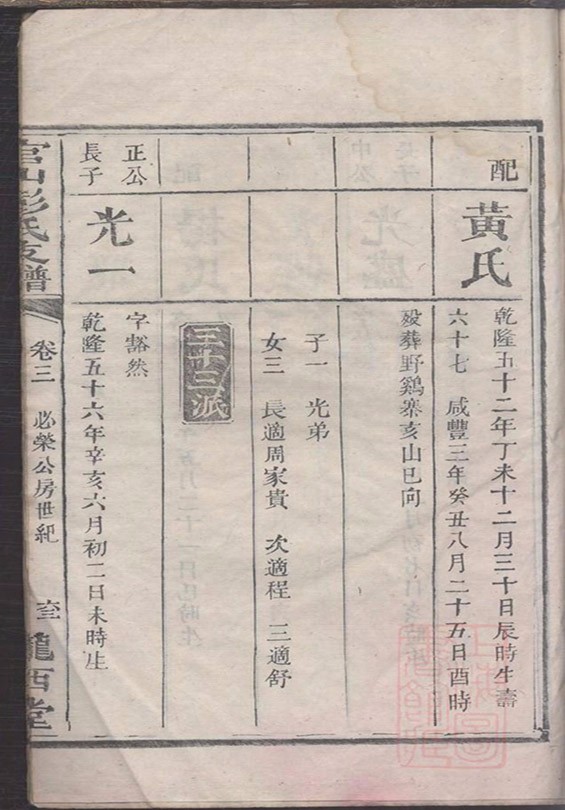 配
黃氏
乾隆五十二年丁未十二月三十日辰時生壽
六十七 咸豐三年癸丑八月二十五日酉時
歿葬野鷄寨亥山巳向
子一 光弟
女三 長適周家貴 次適程 三適舒
三十三派
正公
長子
光一
字豁然
乾隆五十六年辛亥六月初二日未時生
官山彭氏支譜
卷三 必榮公房世紀
隴西堂